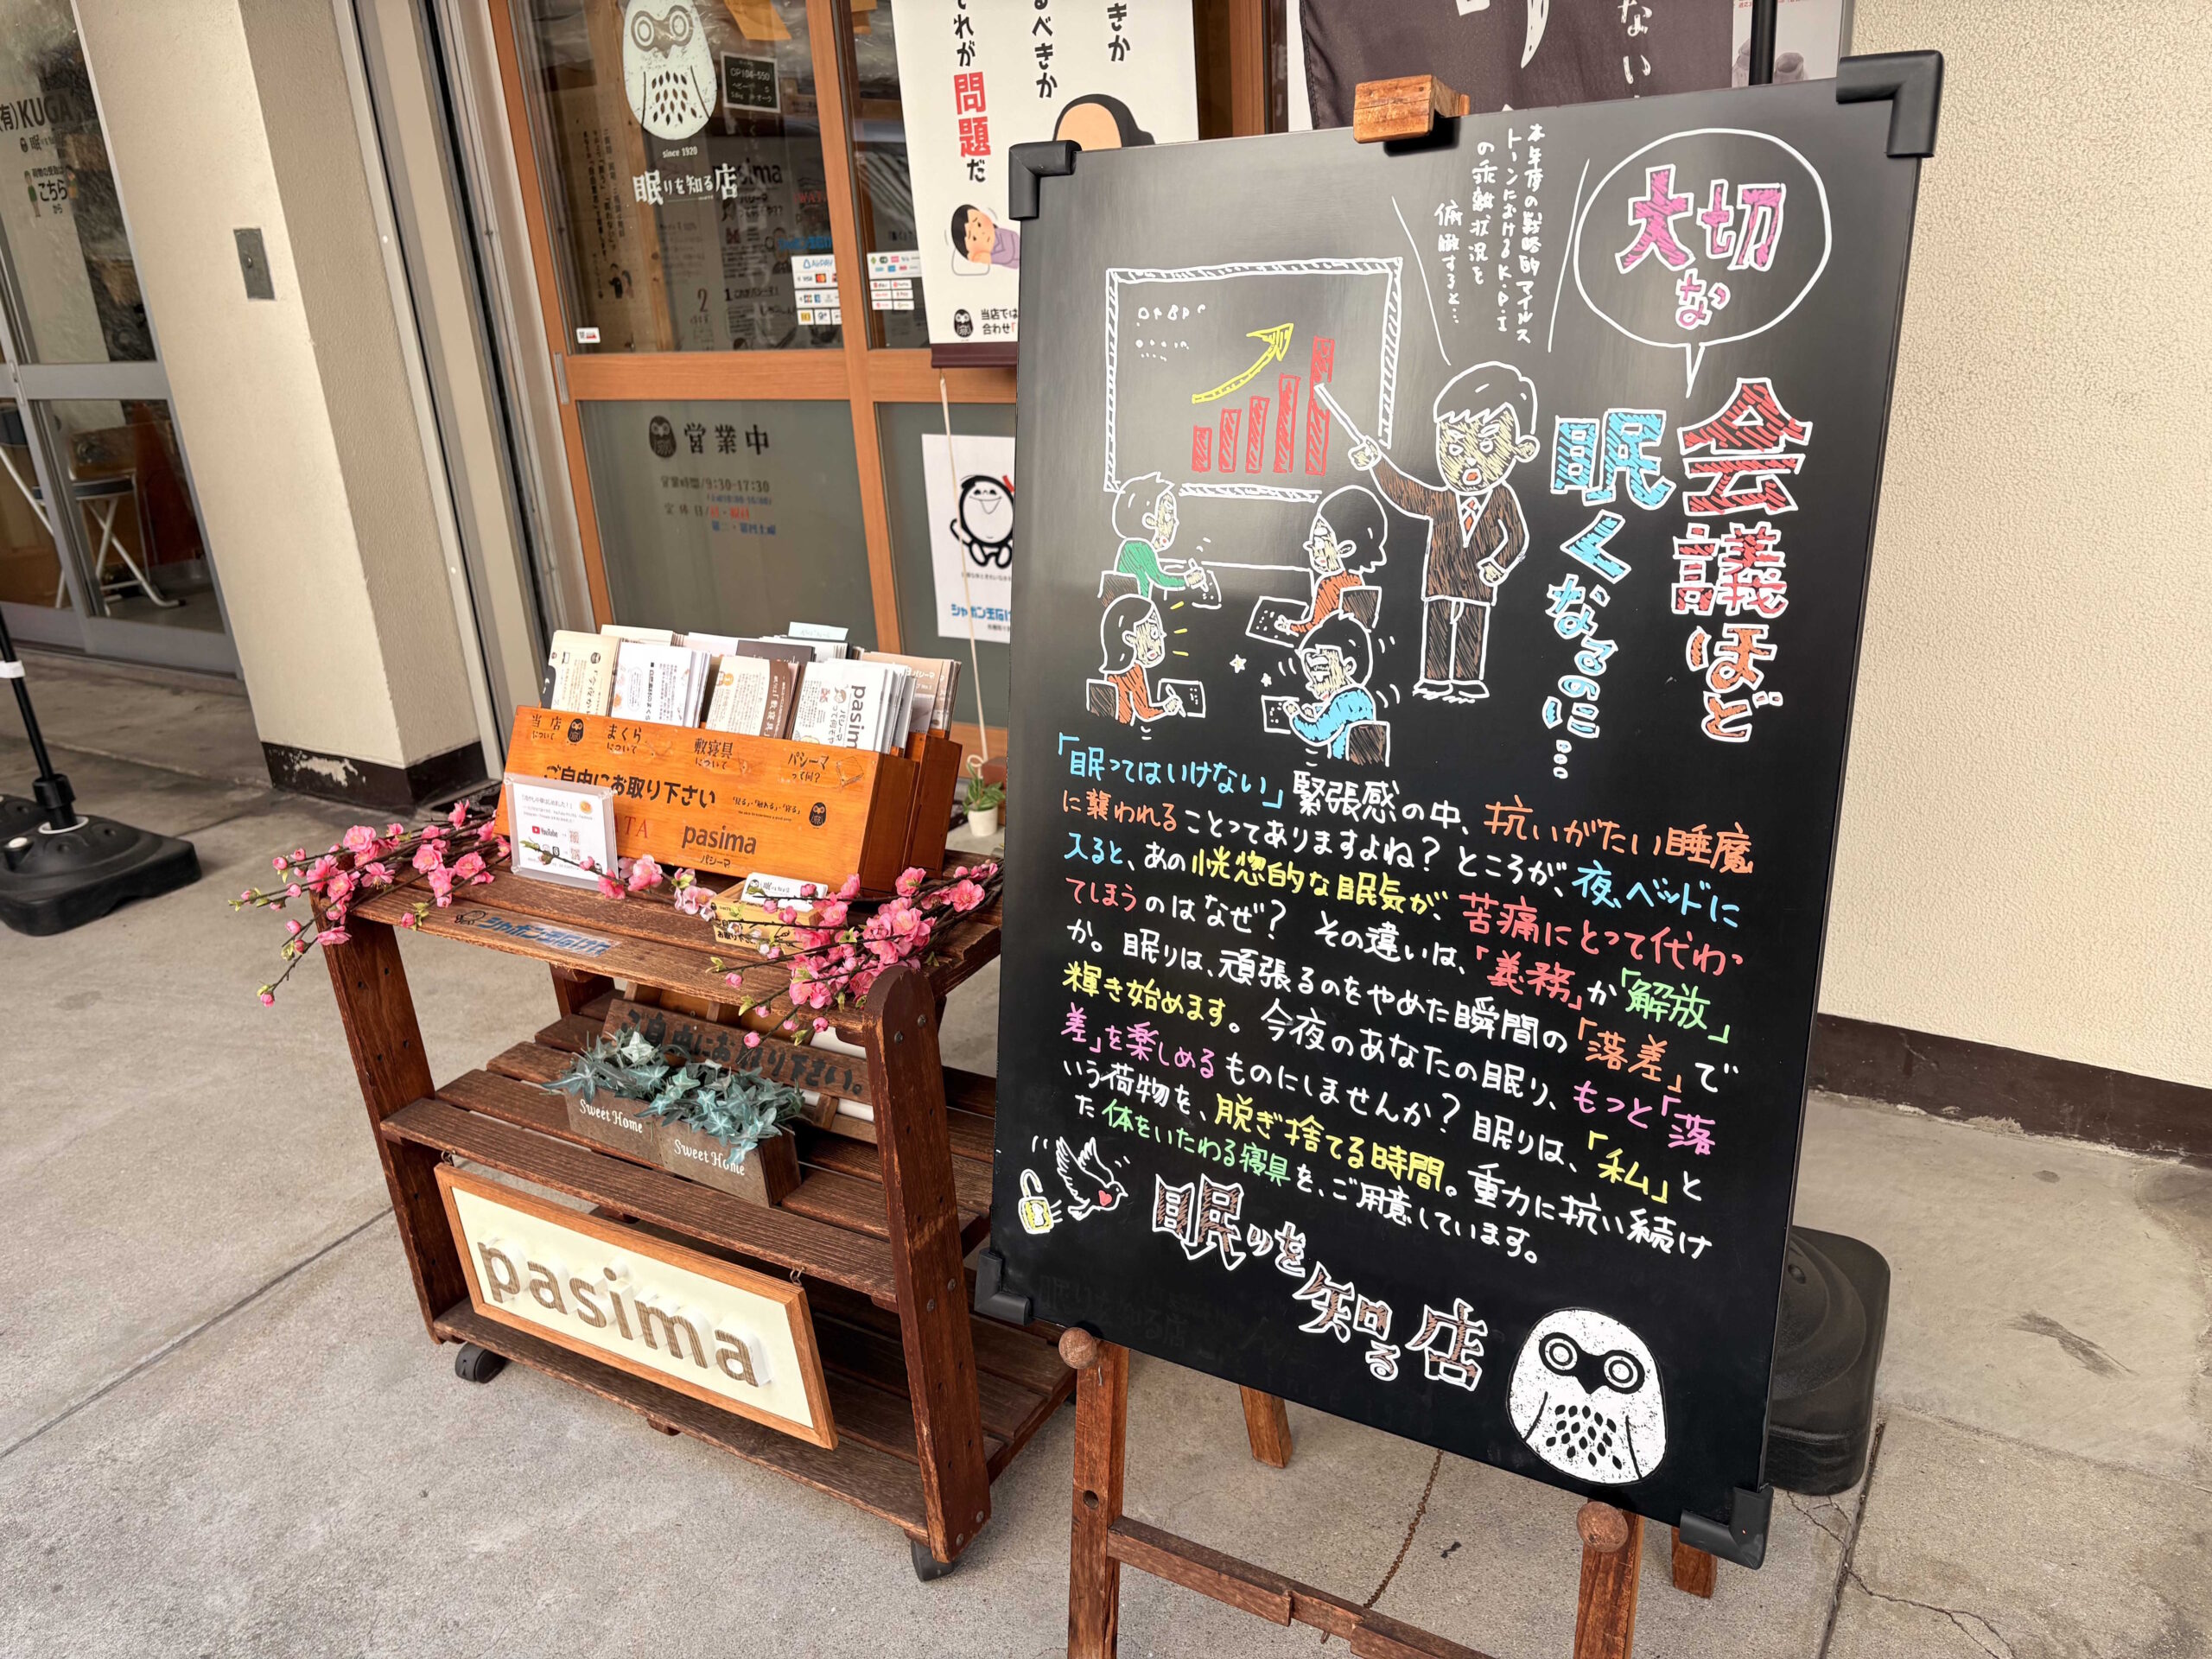 (有)KUGA
こちら
から
since 1920
眠りを知る店
営業中
営業時間/9:30-17:30
きか
るべきか
れが問題だ
当店では
合わせ
ない
シャボン玉石け
大切な
会議ほど
眠くなるのに…
本年度の戦略的マイルス
トーンにおけるK.P.I
の乖離状況を
俯瞰すると…
「眠ってはいけない」緊張感の中、抗いがたい睡魔
に襲われることってありますよね？ところが、夜、ベッドに
入ると、あの恍惚的な眠気が、苦痛にとって代わっ
てしまうのはなぜ？ その違いは、「義務」か「解放」
か。眠りは、頑張るのをやめた瞬間の「落差」で
輝き始めます。今夜のあなたの眠り、もっと「落
差」を楽しめるものにしませんか？眠りは、「私」と
いう荷物を、脱ぎ捨てる時間。重力に抗い続け
た体をいたわる寝具を、ご用意しています。
眠りを知る店
当店について
まくらについて
敷寝具について
パシーマって何？
ご自由にお取り下さい
YouTube
pasima
パシーマ
シャボン玉石けん
ご自由にお取り下さい。
Sweet Home
Sweet Home
pasima